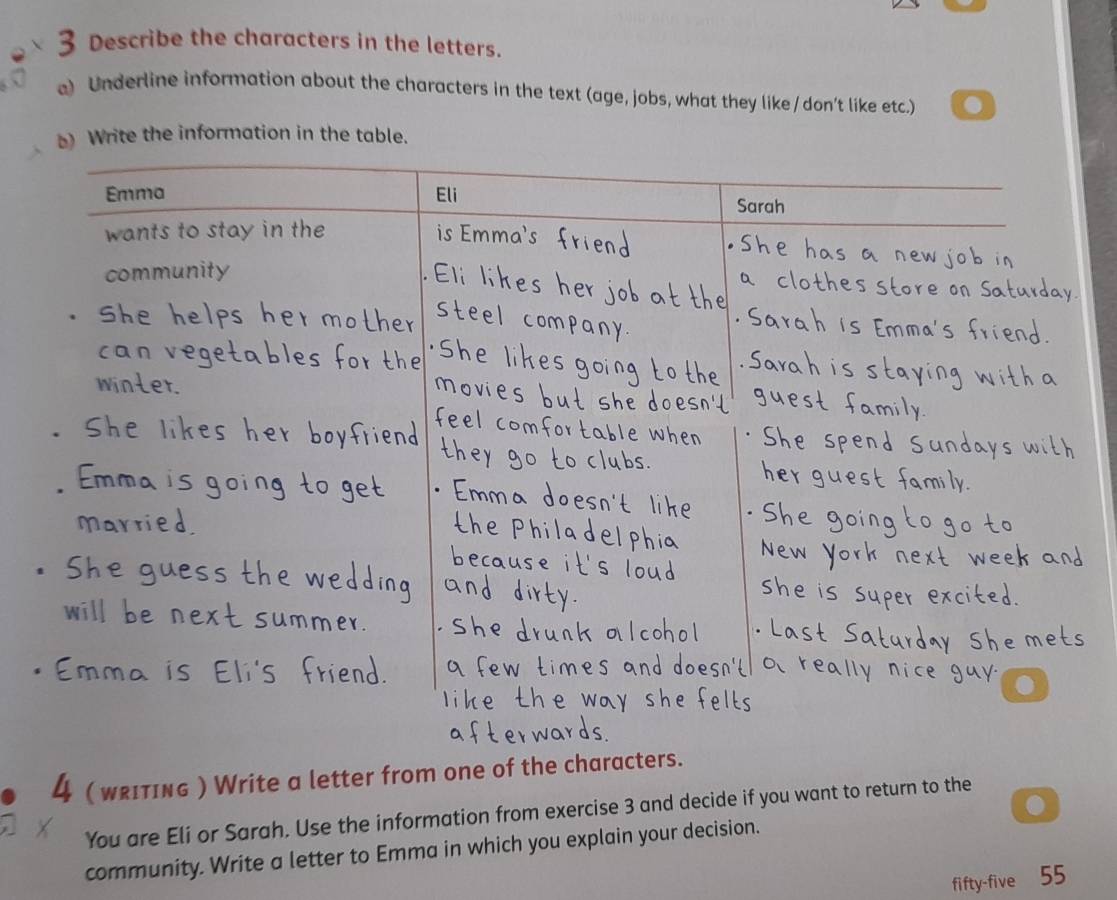 3 Describe the characters in the letters.
a) Underline information about the characters in the text (age, jobs, what they like / don't like etc.)
b) Write the information in the table.
Emma
wants to stay in the
community
• She helps her mother
can vegetables for the
winter.
• She likes her boyfriend
• Emma is going to get
married.
• She guess the wedding
will be next summer.
• Emma is Eli's friend.
Eli
is Emma's friend
• Eli likes her job at the
steel company.
• She likes going to the
movies but she doesn't
feel comfortable when
they go to clubs.
• Emma doesn't like
the Philadelphia
because it's loud
and dirty.
• She drunk alcohol
a few times and doesn't
like the way she felts
afterwards.
Sarah
• She has a new job in
a clothes store on Saturday.
• Sarah is Emma's friend.
• Sarah is staying with a
guest family.
• She spend Sundays with
her guest family.
• She going to go to
New York next week and
she is super excited.
• Last Saturday She mets
a really nice guy.
4 (WRITING) Write a letter from one of the characters.
You are Eli or Sarah. Use the information from exercise 3 and decide if you want to return to the
community. Write a letter to Emma in which you explain your decision.
fifty-five 55